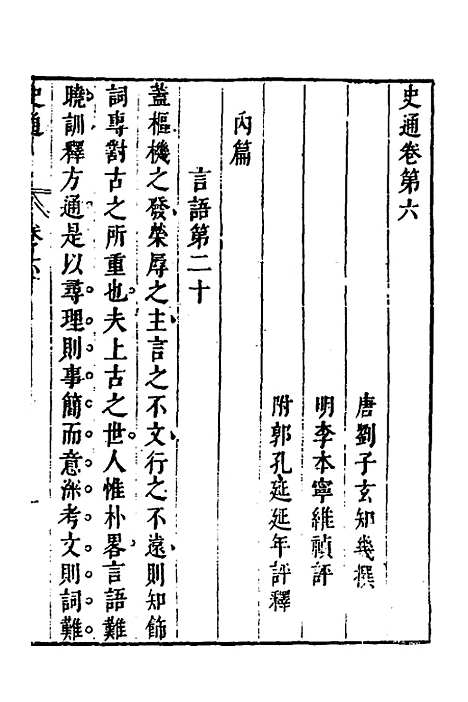 史通卷第六
唐劉子玄知幾撰
明李本寧維禎評
附郭孔延延年評釋
內篇
言語第二十
蓋樞機之發榮辱之主言之不文行之不遠則知飾
詞專對古之所重也夫上古之世人惟朴畧言語難
曉訓釋方通是以尋理則事簡而意深考文則詞難
史通
卷六
一